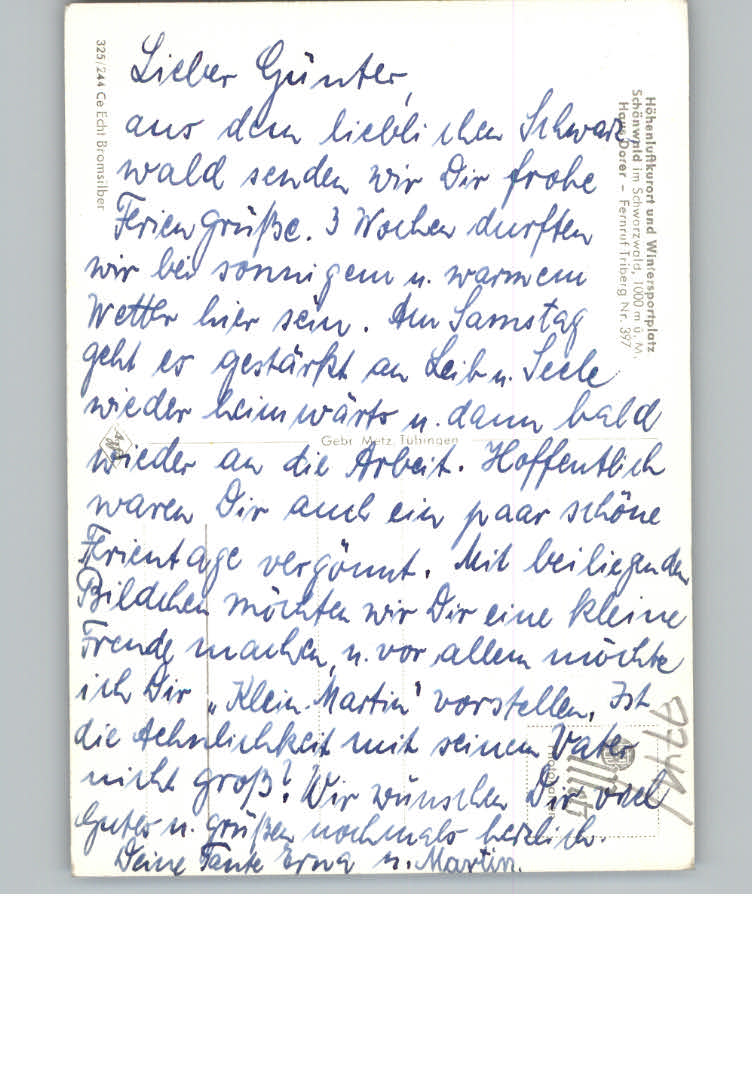 Lieber Günter,
aus dem lieblichen Schwarz
wald senden wir Dir frohe
Feriengrüße. 3 Wochen durften
wir bei sonnigem u. warmem
Wetter hier sein. Am Samstag
geht es gestärkt an Leib u. Seele
wieder heimwärts u. dann bald
wieder an die Arbeit. Hoffentlich
waren Dir auch ein paar schöne
Ferientage vergönnt. Mit beiliegenden
Bildchen möchten wir Dir eine kleine
Freude machen, u. vor allem möchte
ich Dir „Klein-Martin" vorstellen. Ist
die Aehnlichkeit mit seinem Vater
nicht groß? Wir wünschen Dir viel
Gutes u. grüßen nochmals herzlich.
Deine Tante Erna u. Martin.
Höhenluftkurort und Wintersportplatz
Schönwald im Schwarzwald, 1000 m ü. M.
Haus Dorer – Fernruf Triberg Nr. 397
325/244 Ce Echt Bromsilber
Gebr. Metz, Tübingen
Metz
7741